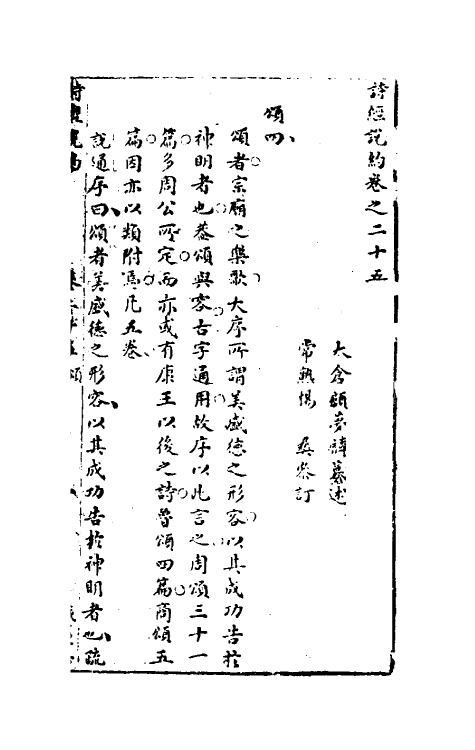 詩經說約卷之二十五
太倉顧夢麟纂述
常熟楊 彝參訂
頌四
頌者宗廟之樂歌大序所謂美盛德之形容以其成功告於
神明者也葢頌與容古字通用故序以此言之周頌三十一
篇多周公所定而亦或有康王以後之詩魯頌四篇商頌五
篇因亦以類附焉凡五卷
說通序曰頌者美盛德之形容以其成功告於神明者也疏